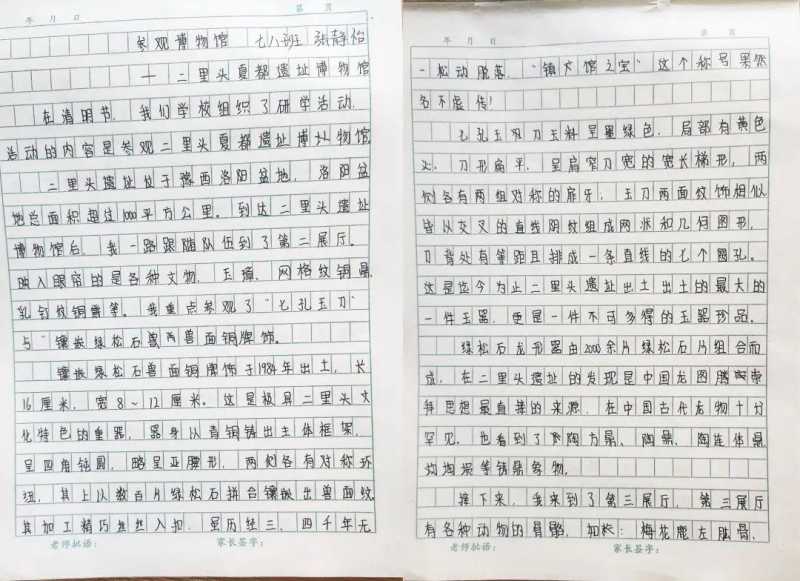 年 月 日 第 页
参观博物馆 七八班 张静怡
— 二里头夏都遗址博物馆
在清明节，我们学校组织了研学活动，
活动的内容是参观二里头夏都遗址博物馆
二里头遗址位于豫西洛阳盆地，洛阳盆
地总面积超过1000平方公里。到达二里头遗址
博物馆后，我一路跟随队伍到了第二展厅。
映入眼帘的是各种文物，玉璋，网格纹铜鼎，
乳钉纹铜爵等。我重点参观了“七孔玉刀”
与“镶嵌绿松石兽面铜牌饰。
镶嵌绿松石兽面铜牌饰于1984年出土，长
16厘米，宽8～12厘米。这是极具二里头文
化特色的重器，器身以青铜铸出主体框架，
呈四角钝圆，略呈亚腰形，两侧各有对称环
纽，其上以数百片绿松石拼合镶嵌出兽面纹
其加工精巧丝丝入扣，虽历经三、四千年无
老师批语： 家长签字：
年 月 日 第 页
一松动脱落，“镇文馆之宝”这个称号果然
名不虚传！
七孔玉刀玉料呈墨绿色，局部有黄色
沁，刀形扁平，呈肩窄刃宽的宽长梯形，两
侧各有两组对称的扉牙，玉刀两面纹饰相似
皆以交叉的直线阴纹组成网状和几何图形，
刀背处有等距且排成一条直线的七个圆孔。
这是迄今为止二里头遗址出土出土的最大的
一件玉器，更是一件不可多得的玉器珍品。
绿松石龙形器由2000余片绿松石片组合而
成，在二里头遗址的发现是中国龙图腾崇
拜思想最直接的来源，在中国古代龙物十分
罕见。也看到了陶方鼎、陶鼎、陶连体鼎
等铸鼎象物。
接下来，我来到了第三展厅，第三展厅
有各种动物的骨骼，如：梅花鹿左肱骨，
老师批语： 家长签字：